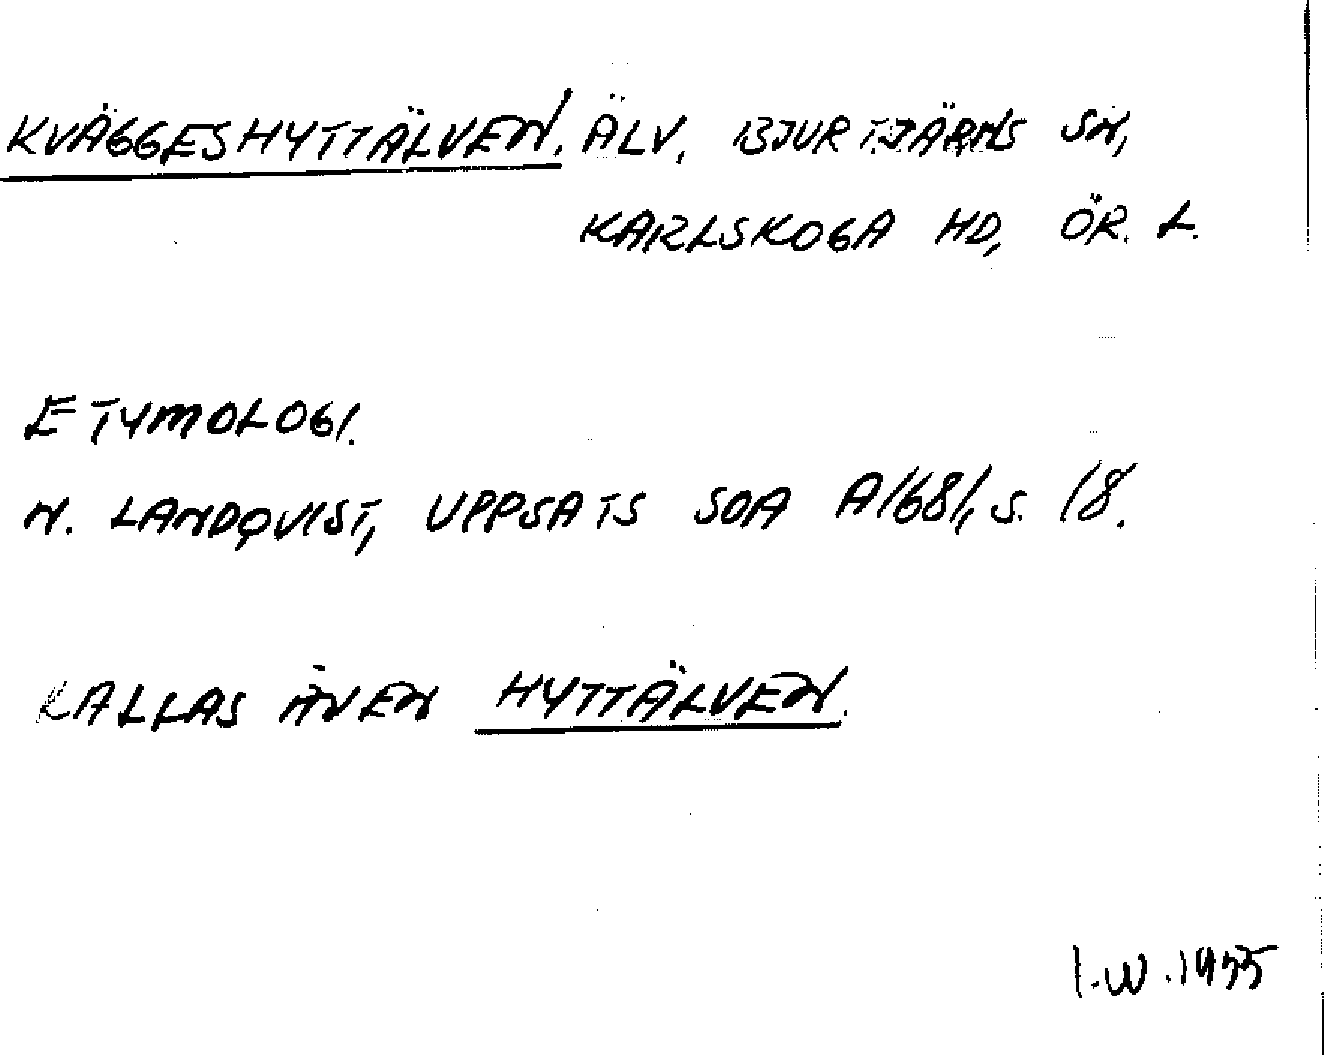 KVÄGGESHYTTÄLVEN. ÄLV. BJURTJÄRNS SN,
KARLSKOGA HD, ÖR. L.
ETYMOLOGI.
N. LANDQVIST, UPPSATS SOA A/681, S. 18.
KALLAS ÄVEN HYTTÄLVEN.
I.W. 1955